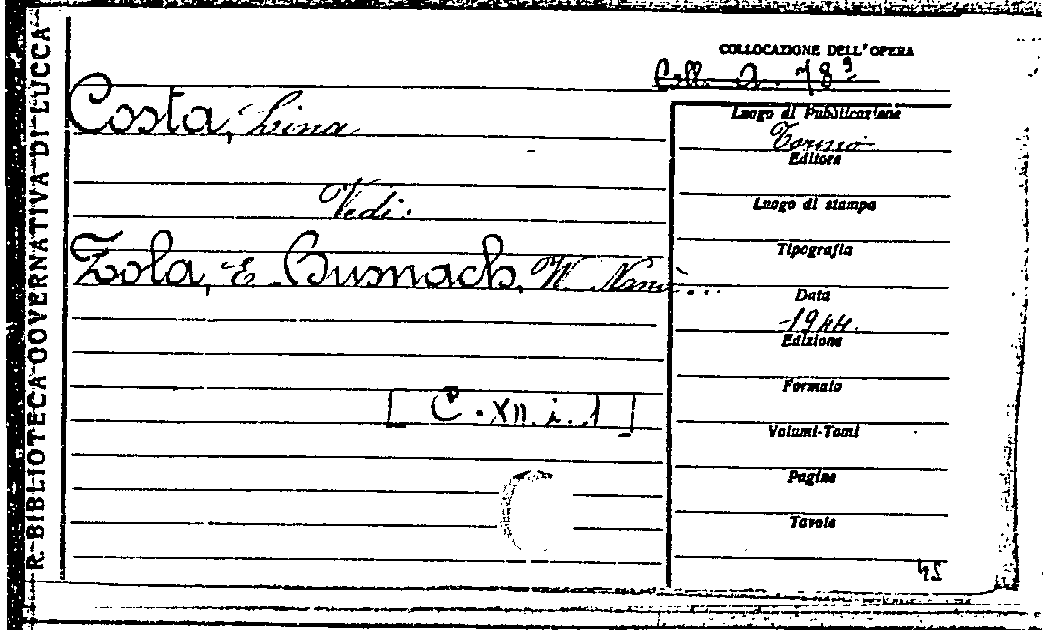 R. BIBLIOTECA GOVERNATIVA DI LUCCA
COLLOCAZIONE DELL'OPERA
Coll. A. 78⁹
Costa, Lina
Vedi:
Zola, E. Busnach, W. Nanà...
[C. XII. i. 1]
Luogo di Pubblicazione
Torino
Editore
Luogo di stampa
Tipografia
Data
1944.
Edizione
Formato
Volumi-Tomi
Pagine
Tavole
45